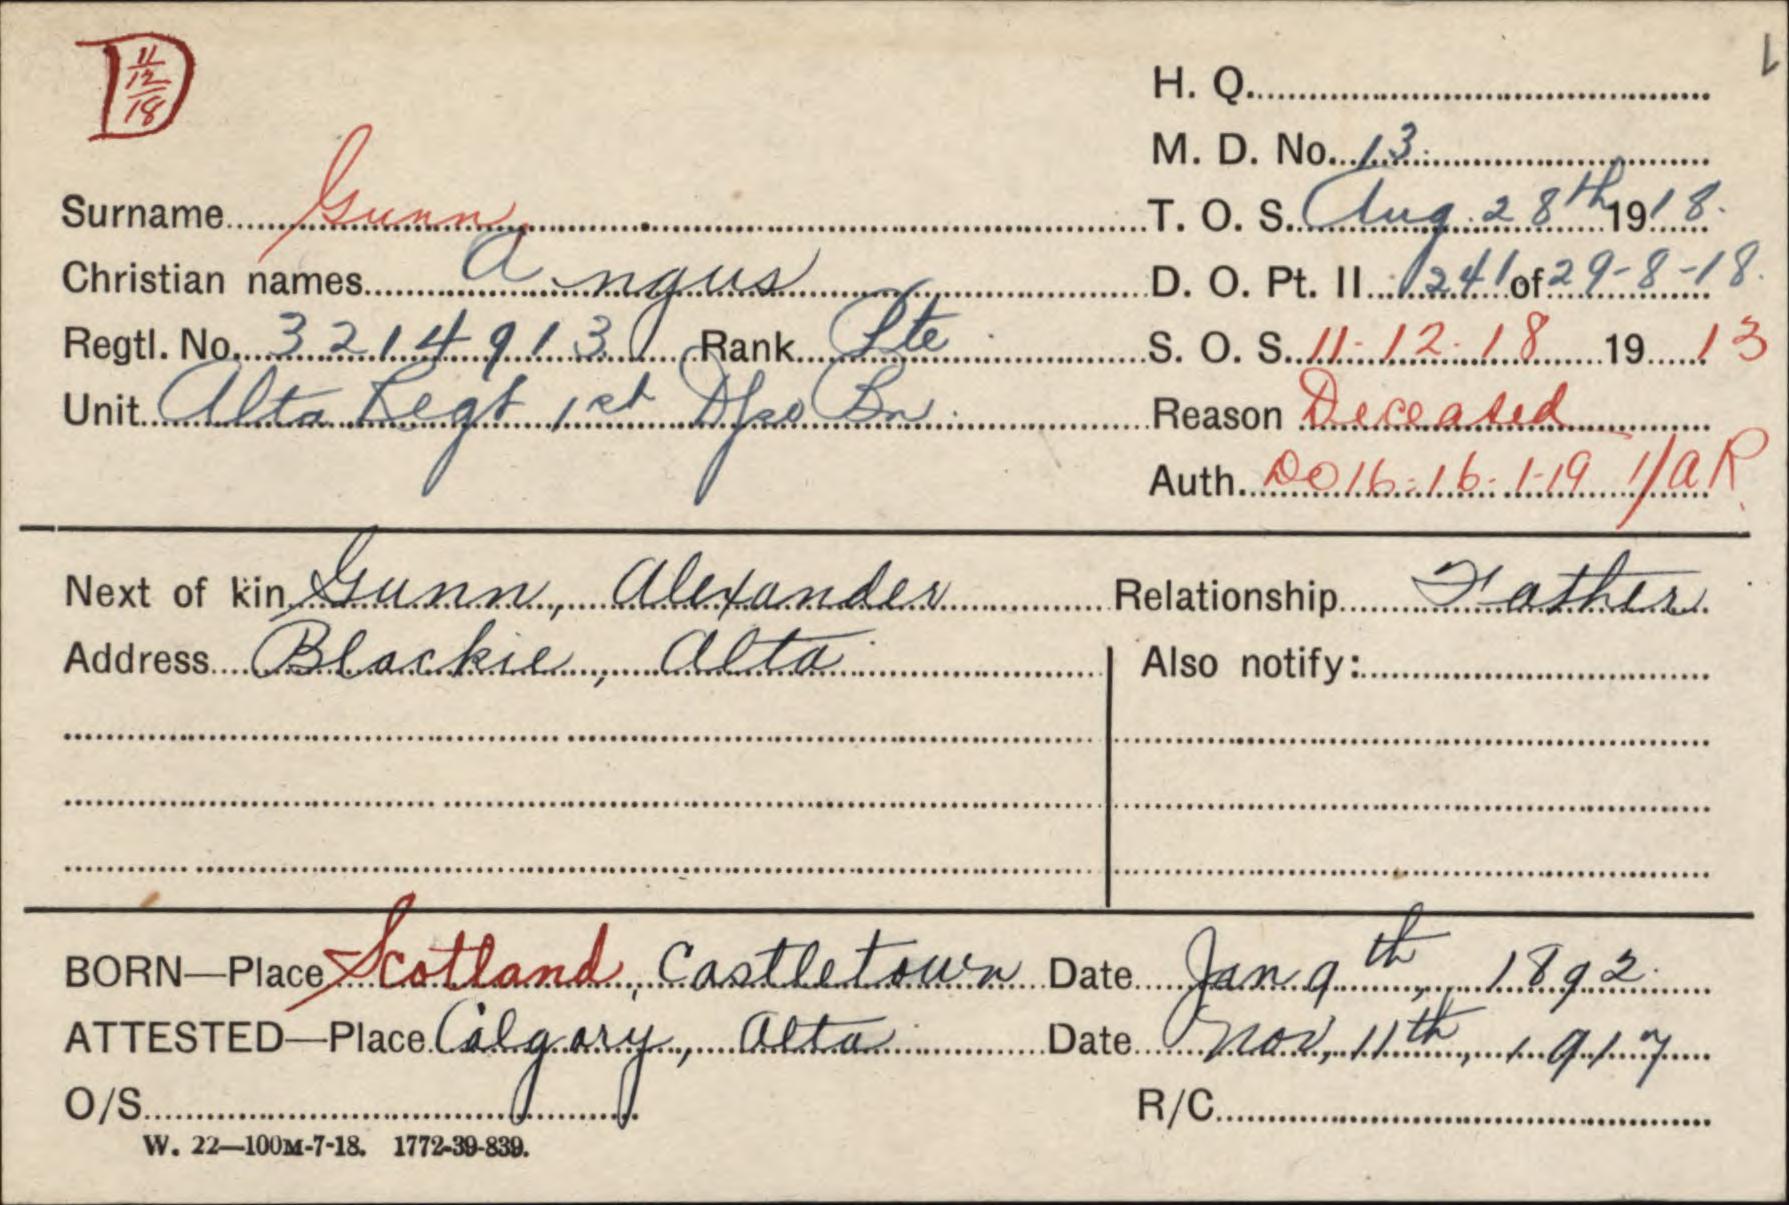 D 11/12/18
H. Q.
M. D. No. 13
Surname Gunn T. O. S. Aug. 28th 1918.
Christian names Angus D. O. Pt. II 241 of 29-8-18.
Regtl. No. 3214913 Rank Pte S. O. S. 11-12-18 19 13
Unit Alta Regt 1st Dpo Bn. Reason Deceased
Auth. DO 16-16-1-19 1/AR
Next of kin Gunn, Alexander Relationship Father
Address Blackie, Alta Also notify:
BORN—Place Scotland, Castletown Date Jan 9th, 1892.
ATTESTED—Place Calgary, Alta Date Nov, 11th, 1917
O/S R/C
W. 22—100M-7-18. 1772-39-839.